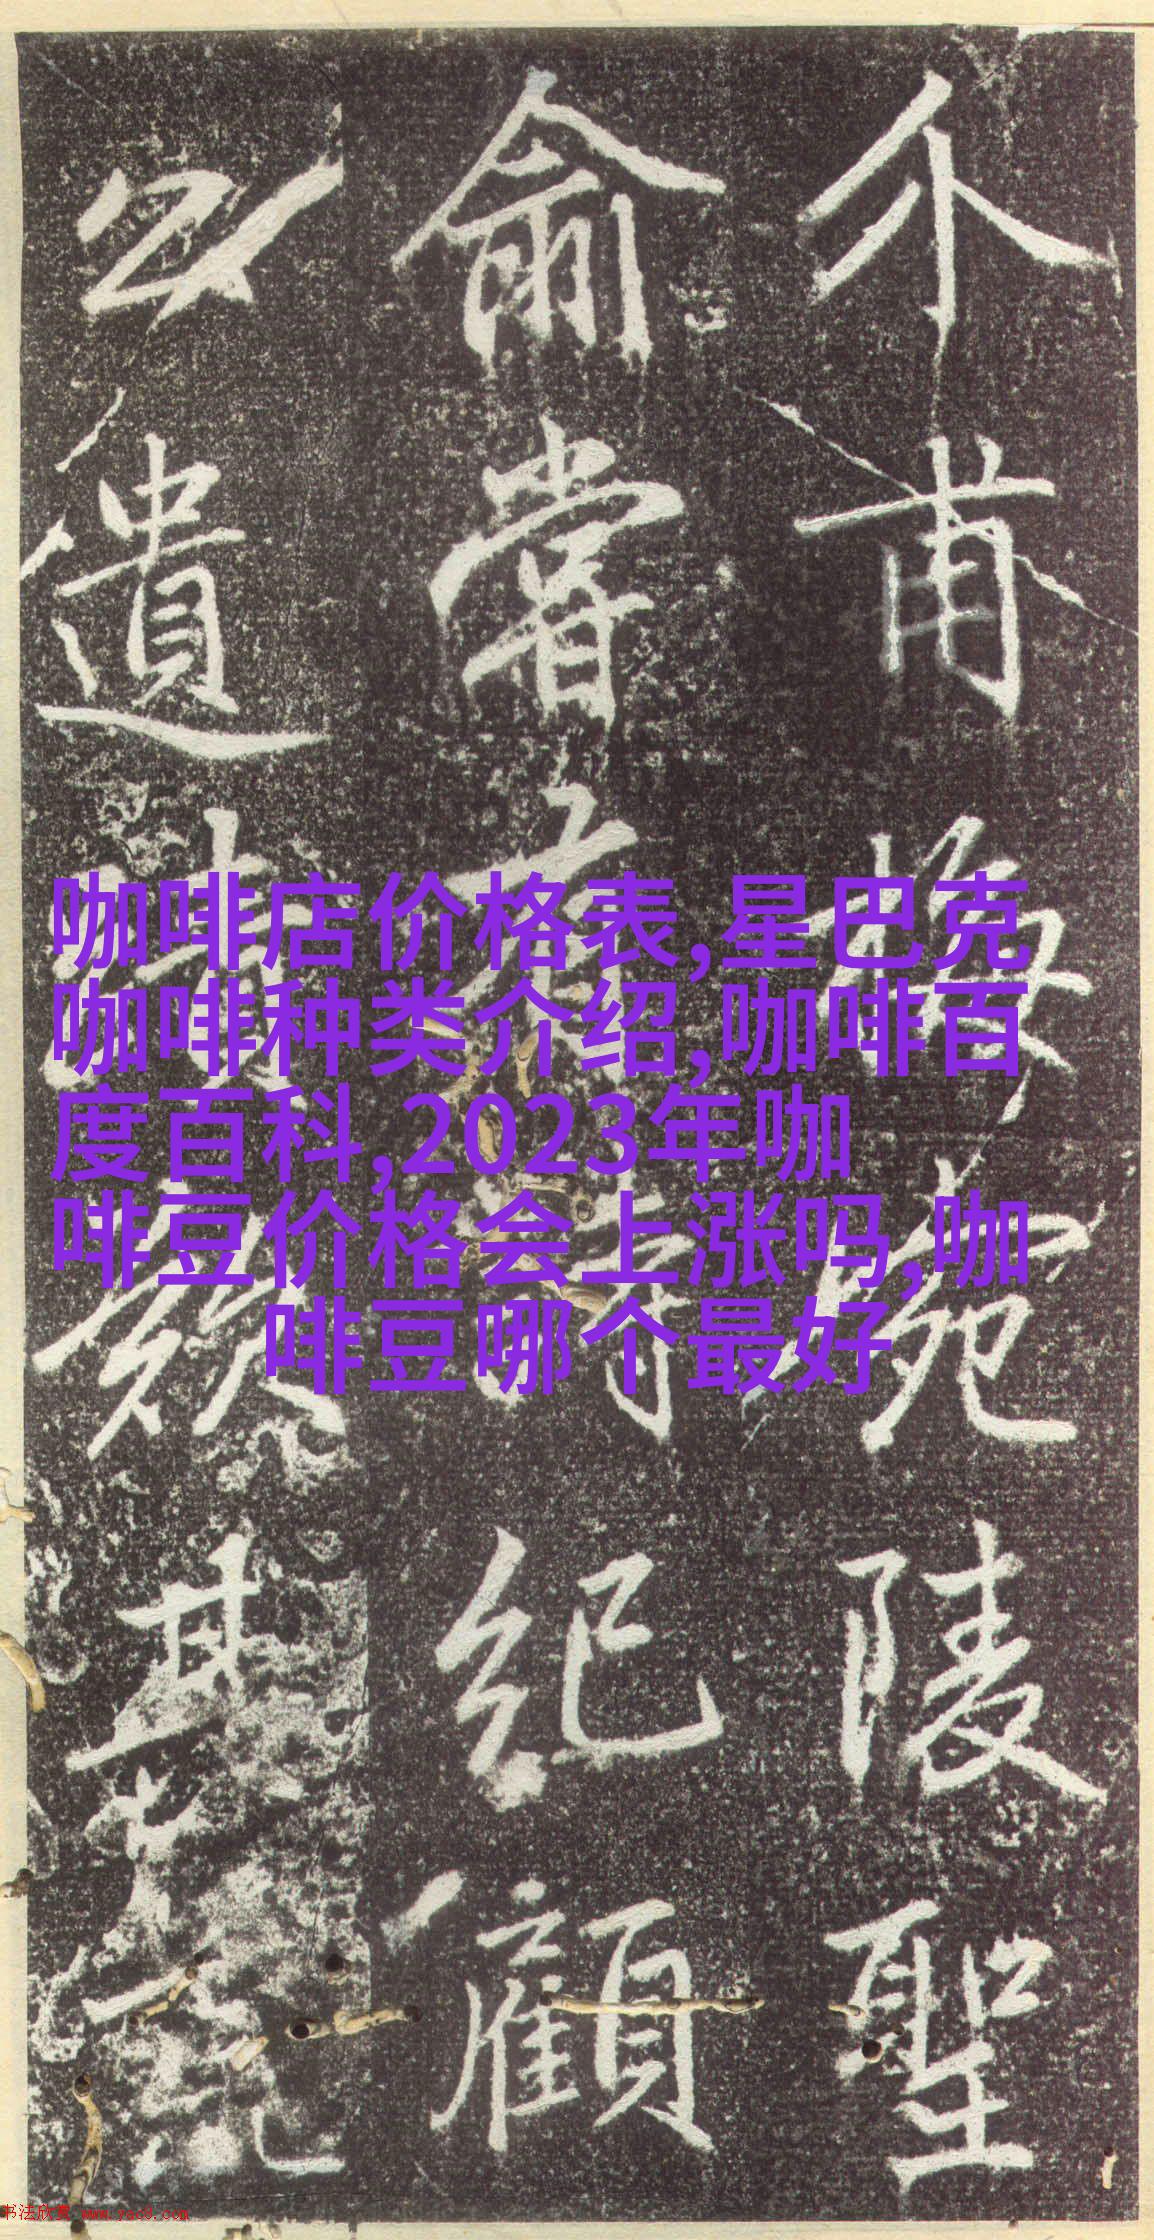 介甫梅宛陵聖
俞嘗有詩紀顧
公遺其
咖啡店价格表,星巴克
咖啡种类介绍,咖啡百
度百科,2023年咖
啡豆价格会上涨吗,咖
啡豆哪个最好
书法欣赏 www.yac8.com